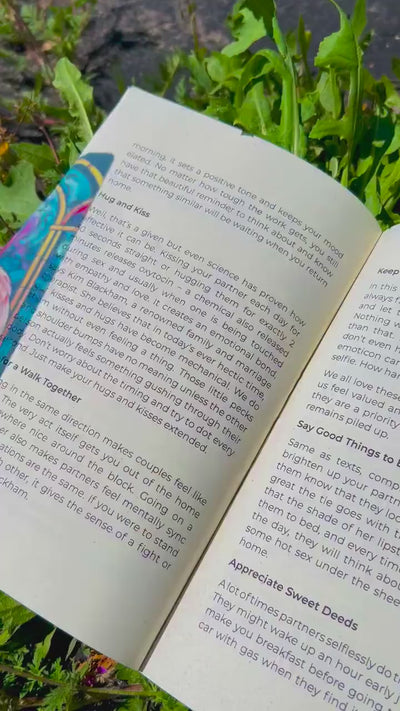 morning, it sets a positive tone and keeps your mood
elated. No matter how tough the work gets, you still
have that beautiful reminder to think about and know
that something similar will be waiting when you return
home.
Hug and Kiss
Well, that's a given but even science has proven how
effective it can be. Kissing your partner each day for
seconds straight or hugging them for exactly 2
minutes releases oxytocin – a chemical also released
during sex and usually, when one is being touched
with empathy and love. It creates an emotional bond,
says Kim Blackham, a renowned family, and marriage
therapist. She believes that in today's ever hectic time,
kisses and hugs have become mechanical. We do
without even feeling a thing. Those little pecks
shoulder bumps have no meaning unless the other
actually feels something gushing through their
Don't worry about the timing and try to dot every
Just make your hugs and kisses extended.
for a Walk Together
in the same direction makes couples feel like
The very act itself gets you out of the home
somewhere nice around the block. Going on a
also makes partners feel mentally sync
are the same. If you were to stand
other, it gives the sense of a fight or
Keep
In this
always
and let
Nothing
than that
don't even
emoticon ca
selfie. How har
We all love these
us feel valued an
they are a priority
remains piled up.
Say Good Things to
Same as texts, comp
brighten up your partn
them know that they loo
great the tie goes with t
that the shade of her lipst
them to bed, and every time
the day, they will think abou
some hot sex under the shee
home.
Appreciate Sweet Deeds
A lot of times partners selflessly do th
They might wake up an hour early j
make you breakfast before going to
car with gas when they find i